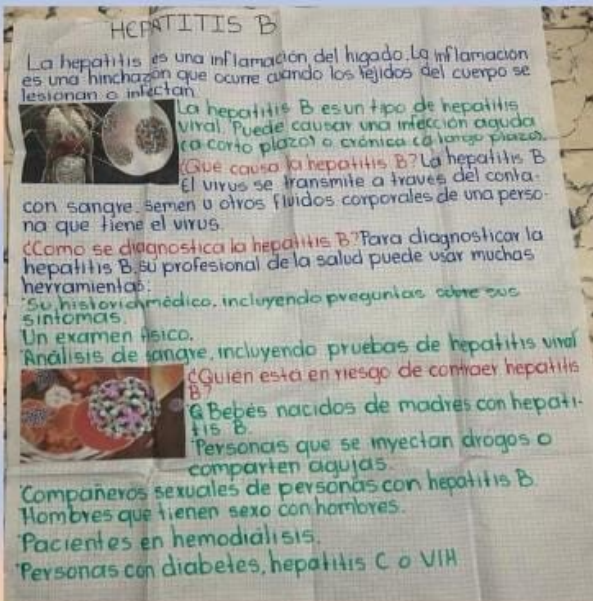 HEPATITIS B
La hepatitis es una inflamación del higado. La inflamacion
es una hinchazón que ocurre cuando los tejidos del cuerpo se
lesionan o infectan
La hepatitis B es un tipo de hepatitis
viral. Puede causar una infección aguda
(a corto plazo) o crónica (a largo plazo).
¿Que causa la hepatitis B? La hepatitis B
El virus se transmite a traves del conta-
con sangre, semen u otros fluidos corporales de una perso-
na que tiene el virus.
¿Como se diagnostica la hepatitis B? Para diagnosticar la
hepatitis B, su profesional de la salud puede usar muchas
herramientas:
Su historial médico, incluyendo preguntas sobre sus
sintomas.
Un examen fisico.
Análisis de sangre, incluyendo pruebas de hepatitis viral
¿Quien esta en riesgo de contraer hepatitis
B?
Bebés nacidos de madres con hepati-
tis B.
Personas que se inyectan drogas o
comparten agujas.
Compañeros sexuales de personas con hepatitis B.
Hombres que tienen sexo con hombres.
Pacientes en hemodiálisis.
Personas con diabetes, hepatitis C o VIH